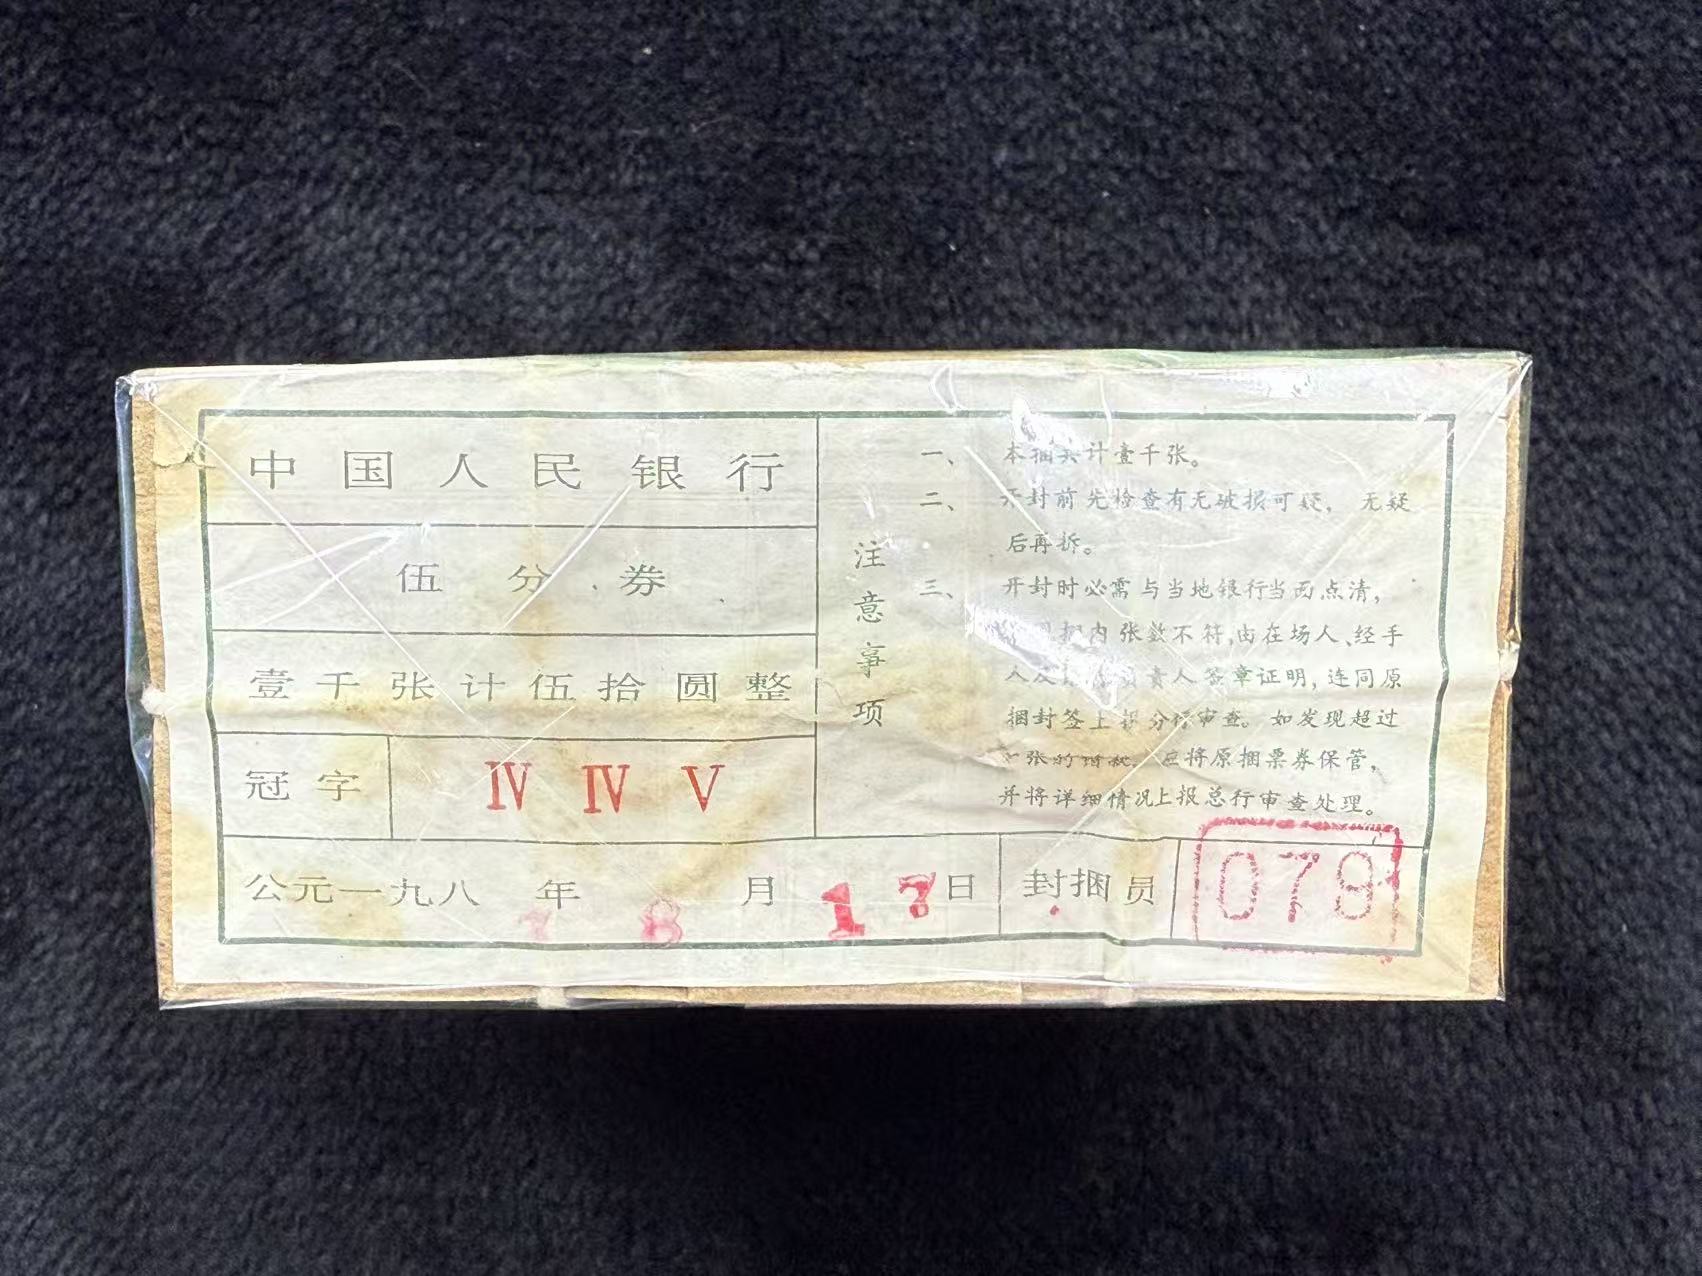 中国人民银行
伍分券
壹千张计伍拾圆整
冠字 Ⅳ Ⅳ Ⅴ
注意事项
一、本捆共计壹千张。
二、开封前先检查有无破损可疑，无疑
后再拆。
三、开封时必需与当地银行当面点清，
内张数不符,由在场人、经手
人及 负责人签章证明,连同原
捆封签上报分行审查。如发现超过
张的错款，应将原捆票券保管，
并将详细情况上报总行审查处理。
公元一九八 年 8 月 17日 封捆员 079